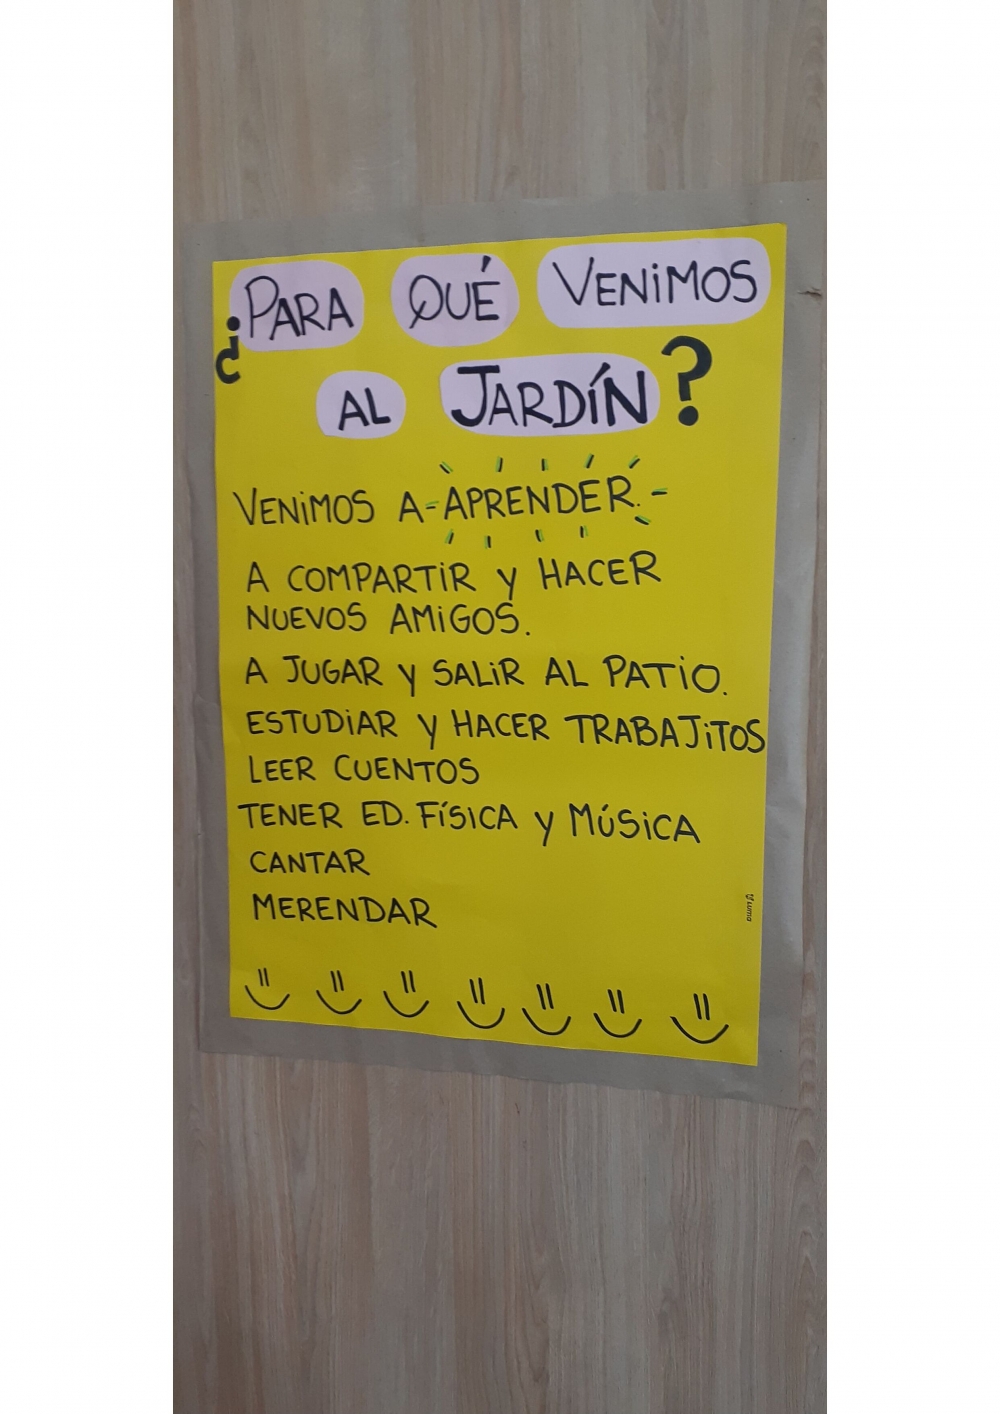 ¿PARA QUÉ VENIMOS
AL JARDÍN?
VENIMOS A-APRENDER.-
A COMPARTIR Y HACER
NUEVOS AMIGOS.
A JUGAR Y SALIR AL PATIO.
ESTUDIAR Y HACER TRABAJITOS
LEER CUENTOS
TENER ED. FÍSICA Y MÚSICA
CANTAR
MERENDAR
Luma